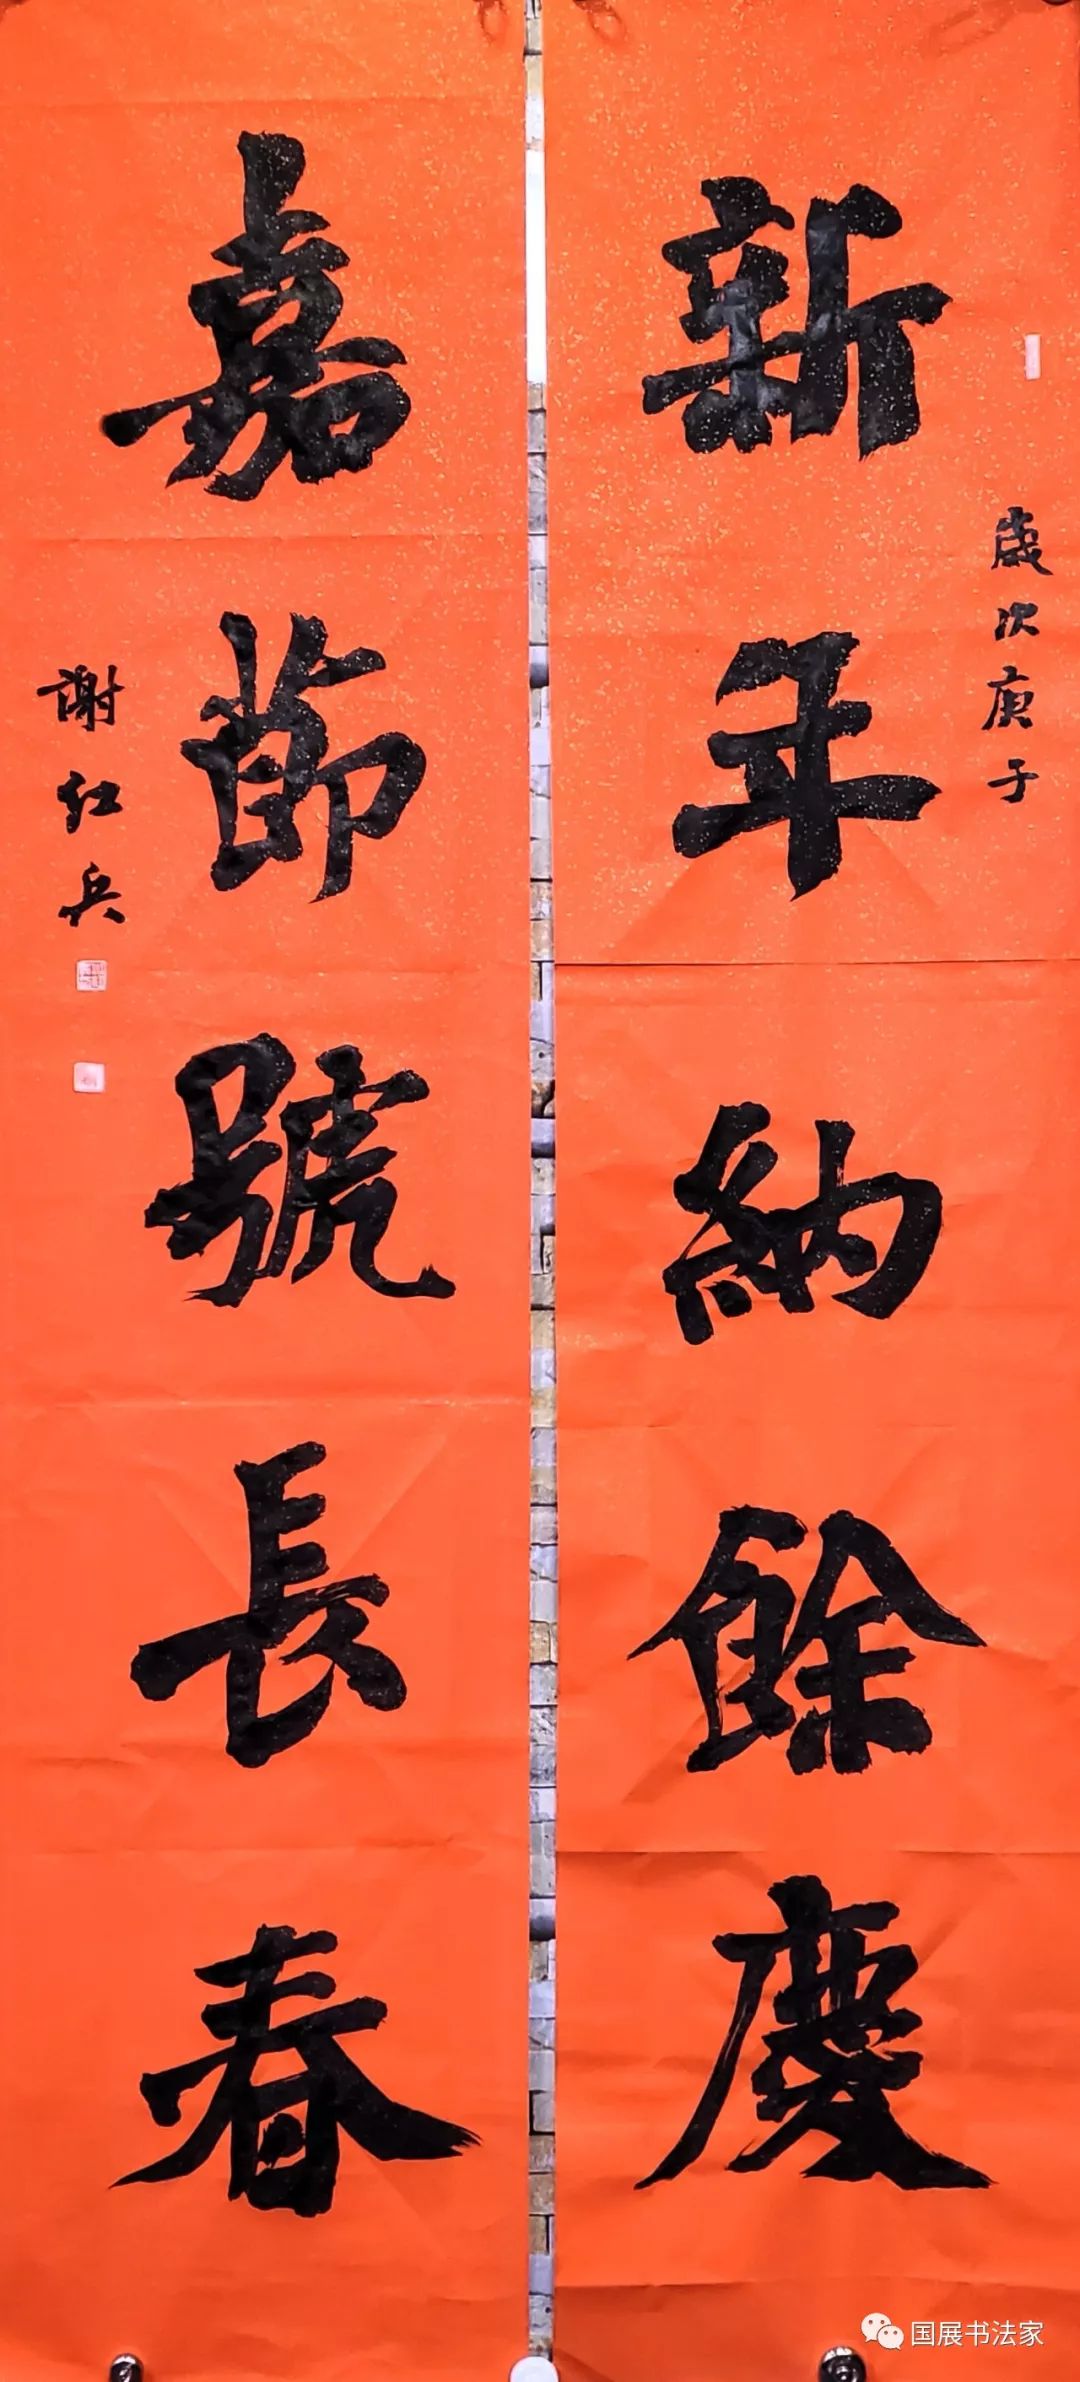 新年納餘慶
歲次庚子
嘉節號長春
謝紅兵
国展书法家